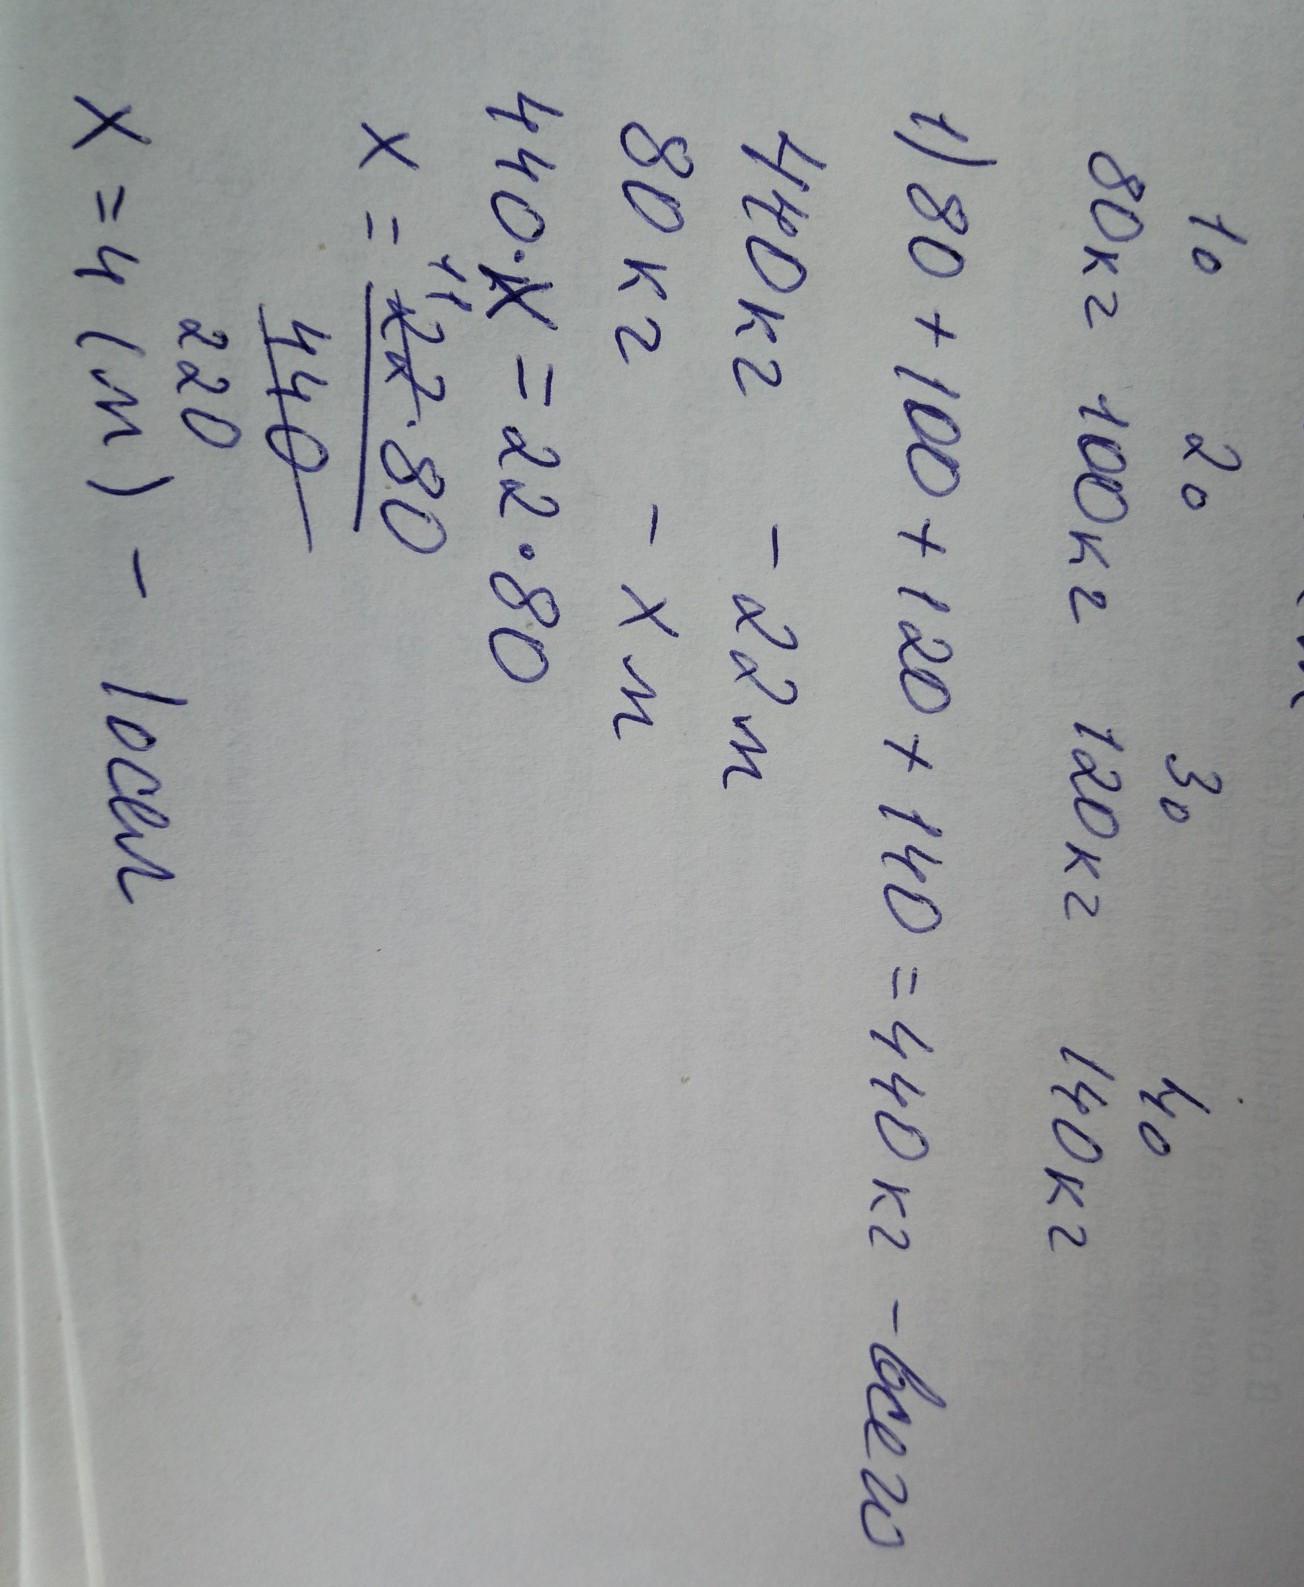 1о 2о 3о 4о
80кг 100кг 120кг 140кг
1) 80 + 100 + 120 + 140 = 440 кг - всего
440 кг - 22 м
80 кг - х м
440·х = 22·80
11
х = 22·80
440
220
х = 4 (м) - 1осел